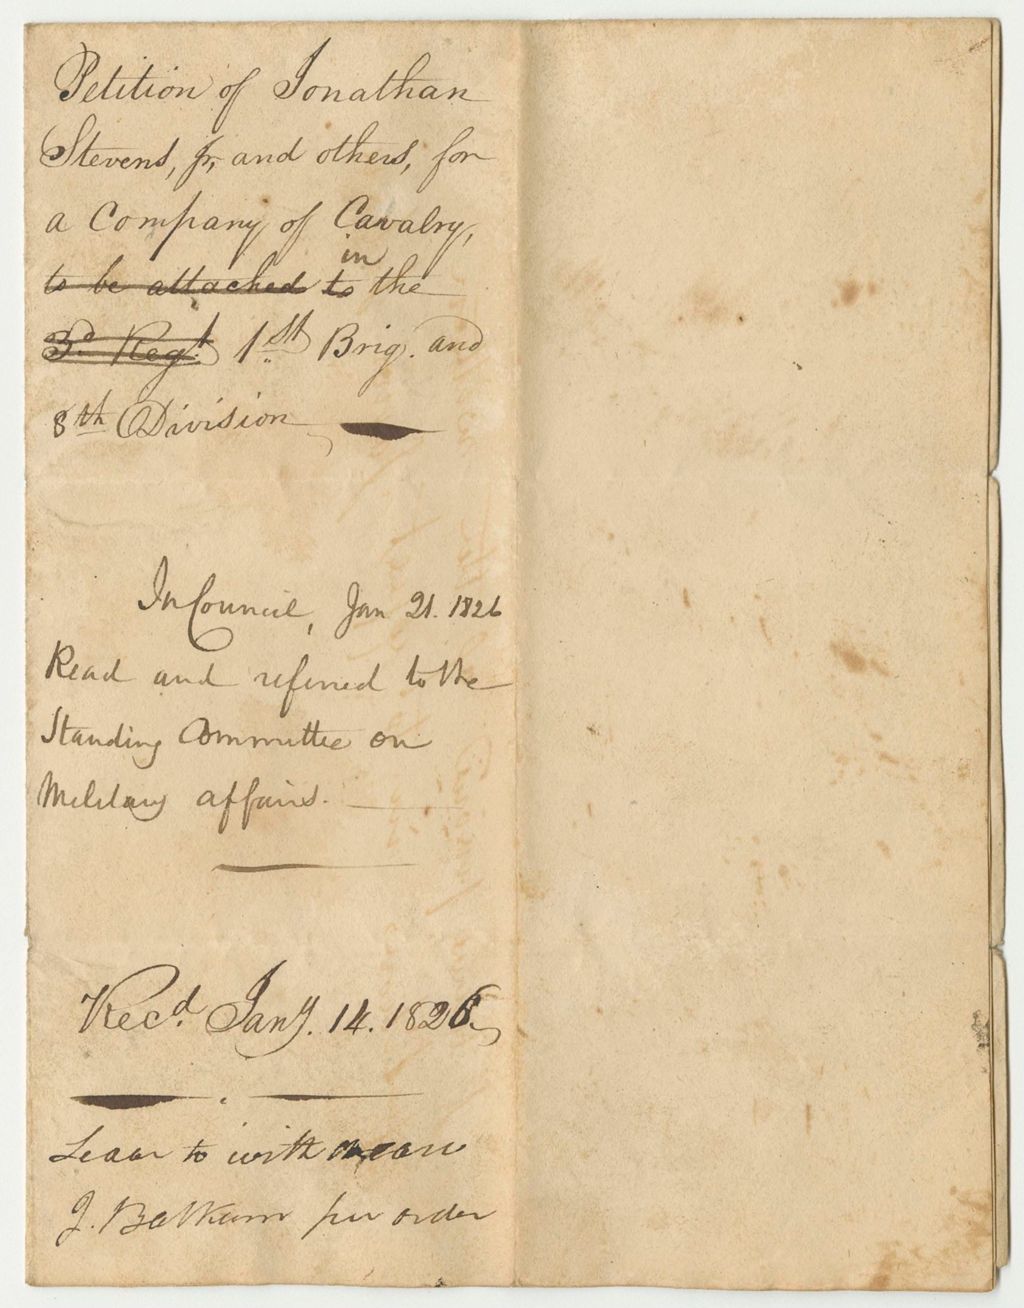 Petition of Jonathan
Stevens, Jr, and others, for
a Company of Cavalry,
in
to be attached to the
3d Regt. 1st Brig. and
8th Division
In Council, Jan 21. 1826
Read and referred to the
Standing Committee on
Military affairs.
Recd. Jany. 14. 1826.
Leave to with
J. Balkam per order